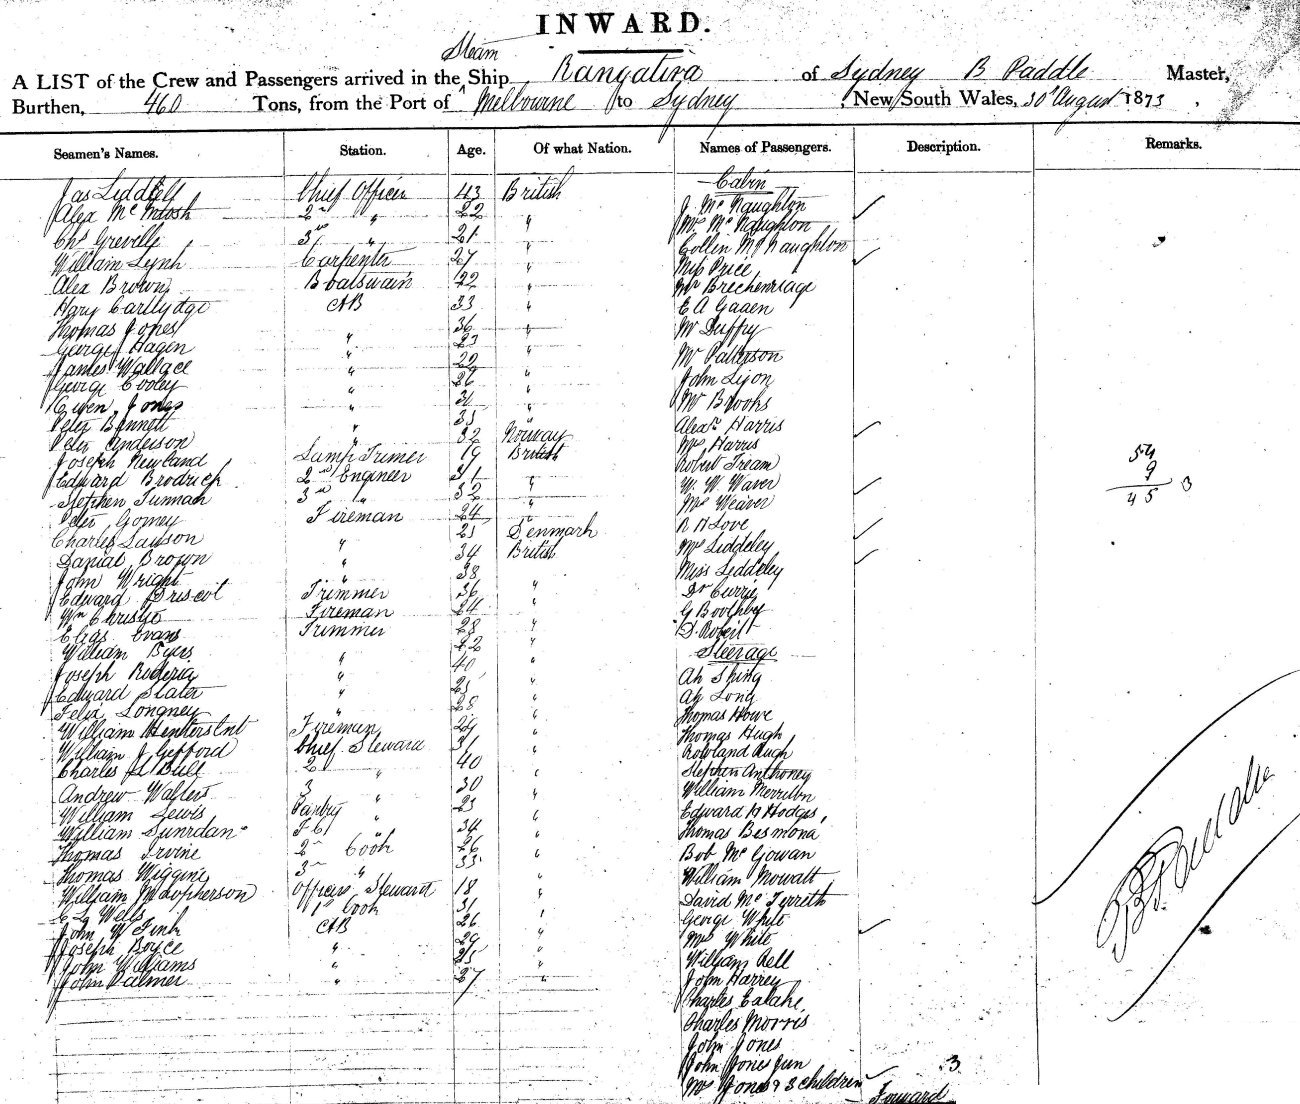 INWARD.
Steam
A LIST of the Crew and Passengers arrived in the Ship Rangatira of Sydney B Paddle Master,
Burthen, 460 Tons, from the Port of Melbourne to Sydney, New South Wales, 30th August 1873,
Seamen's Names. Station. Age. Of what Nation. Names of Passengers. Description. Remarks.
Cabin
Jas Liddell Chief Officer 43 British J. Mc Naughton
Alex Mc Intosh 2nd " 22 " Mrs Mc Naughton
Chs Greville 3rd " 21 " Collin Mc Naughton
William Lynh Carpenter 27 " Miss Price
Alex Brown Boatswain 22 " Mr
Hary Cartlydge AB 33 " E A
Thomas Jones " 36 " Mr Duffy
George Hagen " 23 " Mr Patterson
James Wallace " 22 " John Lyon
George Cooley " 26 " Mr Brooks
Owen Jones " 31 " Alexr Harris
Peter Bennett " 35 " Mrs Harris
Peter Anderson " 32 Norway Robert Fream
Joseph Newland Lamp Trimer 19 British W. W Waver
Edward Brodrick 2nd Engineer 31 " Mrs Weaver
Stephen Tunnah 3rd " 32 " R H Love
Peter Gomey Fireman 24 " Mrs Liddeley
Charles Lawson " 25 Denmark Miss Liddeley
Danial Brown " 34 British Dr Currie
John Wright " 38 " G Boothby
Edward Driscol Trimmer 36 " D. Robert
Wm Christie Fireman 24 " Steerage
Evans Trimmer 28 " Ah Shing
William Byers " 22 " Ah Long
Joseph Roderig " 40 " Thomas Howe
Edward Slater " 25 " Thomas Hugh
Felix Longney " 28 " Rowland Hugh
William Fireman 29 " Stephen Anthoney
William J Gefford Chief Steward 31 " William
Charles H Bull 2 " 40 " Edward H Hodges,
Andrew Walters 3 " 30 " Thomas Besmona
William Lewis Pantry " 25 " Bob Mc Gowan
William F C " 34 " William Mowatt
Thomas Irvine 2nd Cook 26 " David Mc
Thomas Wiggins 3rd " 33 " George White
William Macpherson Officers Steward 18 " Mrs White
Wells 1st Cook 31 " William Aell
John W Fink AB 26 " John Harrey
Joseph Boyce " 29 " Charles Calahe
John Williams " 25 " Charles Morris
John Palmer " 27 " John Jones
John Jones Jun
Mrs Jones & 3 children 3
Forward
54
9
45 3
B Paddle